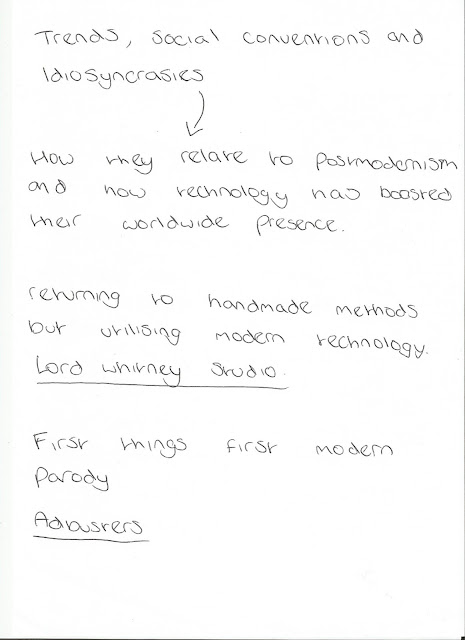 Trends, social conventions and
Idiosyncrasies
How they relate to postmodernism
and how technology has boosted
their worldwide presence.
returning to handmade methods
but utilising modern technology.
Lord whitney studio.
First things first modern
Parody
Adbusters